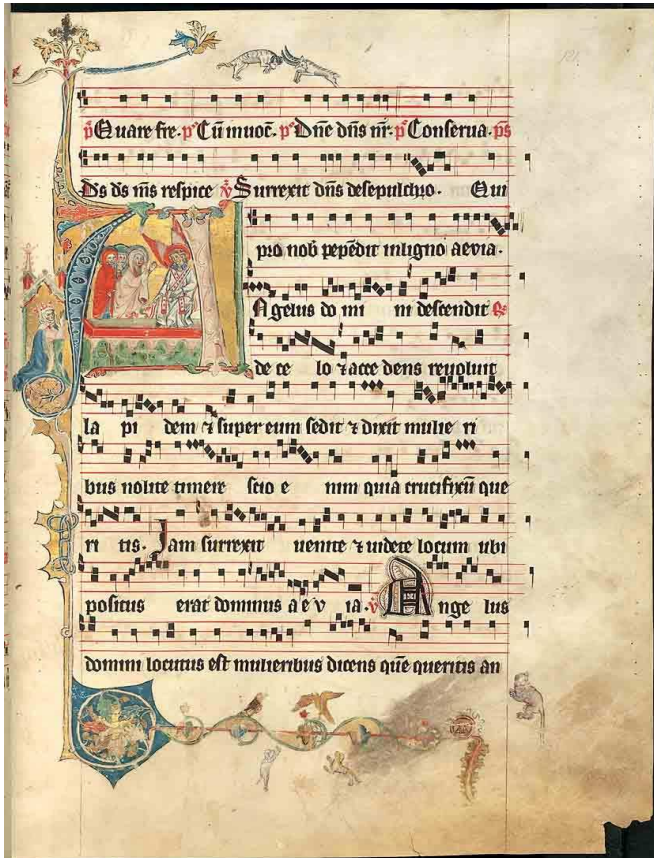 p̄s Quare fre. p̄s Cū inuoc̄. p̄s Dn̄e dn̄s nr̄. p̄s Conserua. p̄s
Ds ds ms respice ℣ Surrexit dn̄s desepulchro. Qui
pro nob̄ pepēdit inligno aevia.
Angelus do mi ni descendit ℟
de ce lo ⁊ acce dens reuoluit
la pi dem ⁊ super eum sedit ⁊ dixit mulie ri
bus nolite timere scio e nim quia crucifixū que
ri tis. Jam surrexit uenite ⁊ uidete locum ubi
positus erat dominus a e v ia. ℣ Ange lus
domini locutus est mulieribus dicens quē queritis an